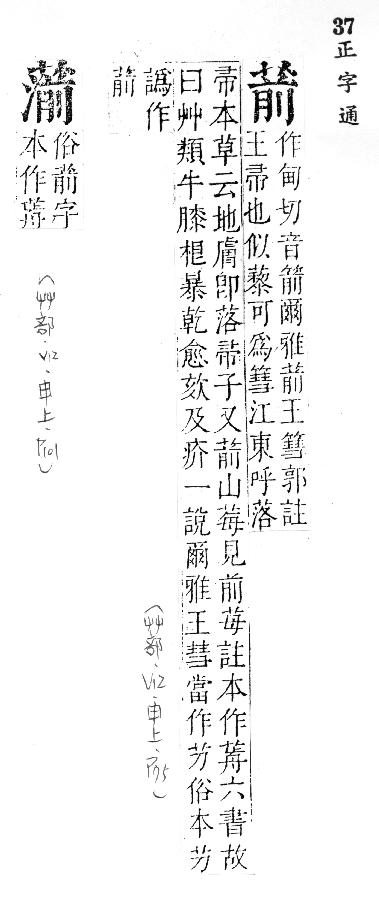 37
正字通
葥
作甸切音箭爾雅葥王篲郭註
王帚也似藜可為篲江東呼落
帚本草云地膚即落帚子又葥山莓見前莓註本作六書故
曰艸類牛膝根暴乾愈欬及疥一說爾雅王彗當作艻俗本艻
譌作
葥
(艸部.V12.申上.P75)
俗葥字
本作
(艸部.V12.申上.P101)